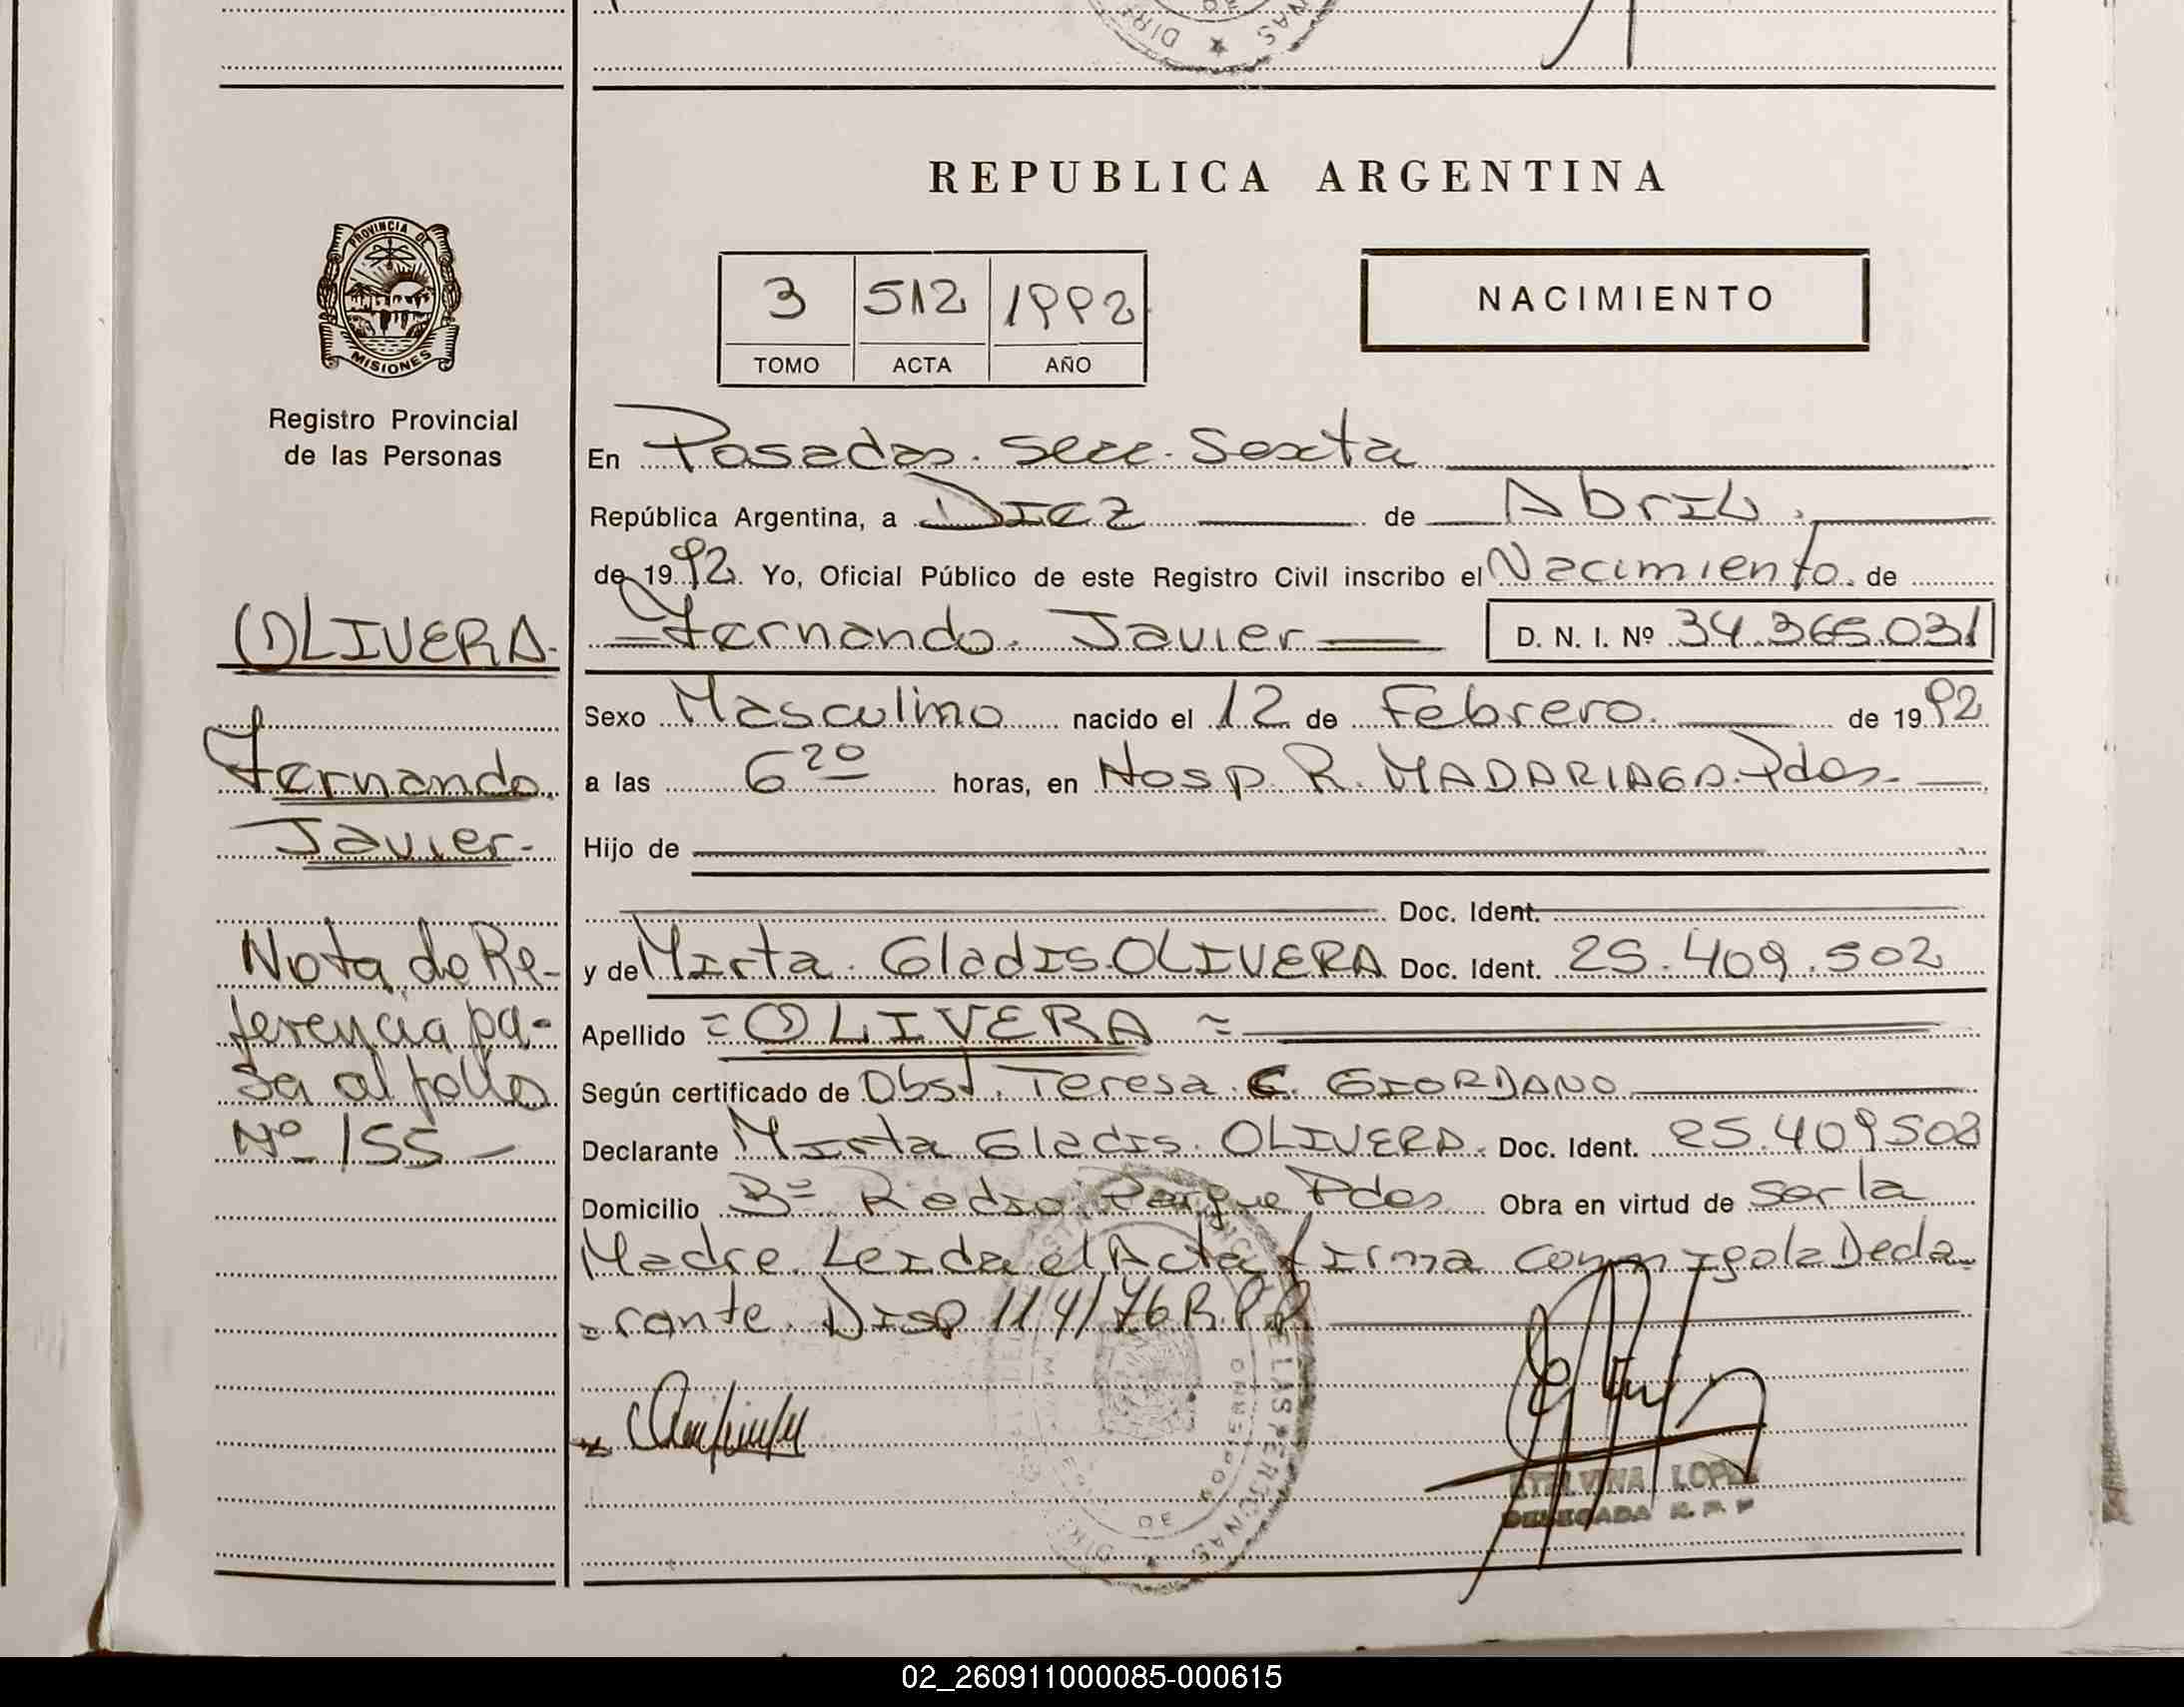 REPUBLICA ARGENTINA
PROVINCIA DE
MISIONES
Registro Provincial
de las Personas
3 512 1992
TOMO ACTA AÑO
NACIMIENTO
En Posadas. Secc. Sexta
República Argentina, a Diez de Abril.
de 1992. Yo, Oficial Público de este Registro Civil inscribo el Nacimiento. de
Fernando. Javier D. N. I. Nº 34.365.031
Sexo Masculino nacido el 12 de Febrero. de 1992
a las 6 20 horas, en Hosp. R. MADARIAGA. Pdas.
Hijo de
Doc. Ident.
y de Mirta. Gladis. OLIVERA Doc. Ident. 25.409.502
Apellido = OLIVERA =
Según certificado de Obst. Teresa C. GIORDANO
Declarante Mirta Gladis. OLIVERA. Doc. Ident. 25.409502
Domicilio Bº Radio Parque Pdas Obra en virtud de ser la
Madre. Leida el Acta firma conmigo la Decla
=rante. Disp 114/76 R.P.P
OLIVERA.
Fernando.
Javier.
Nota de Re-
ferencia pa-
sa al folio
Nº 155 -
ETELVINA LOPEZ
DELEGADA R. P. P
02_260911000085-000615